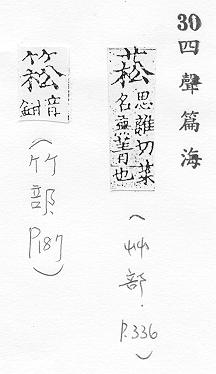 30四聲篇海
菘
思雖切菜
名蕪菁也
(艸部.P.336)
䈡
音
(竹部.P187)